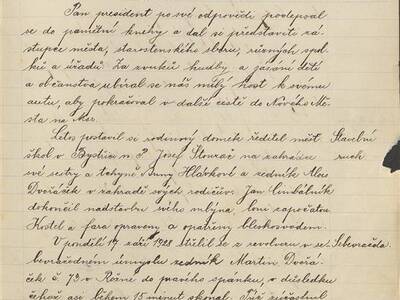 Pan president po své odpovědi podepsal
se do pamětní knihy a dal se představiti zá-
stupce města, starostenského sboru, různých spol-
ků a úřadů. Za zvuků hudby a jásání dětí
a občanstva ubíral se náš milý host k svému
autu, aby pokračoval v další cestě do Nového Mě-
sta na Mor.
Letos postavil se rodinný domek ředitel měšť. Stavební
škol v Bystřici n. P. Josef Slourač na zahradu ruch
své sestry a tchyně Anny Hlávkové a zedník Alois
Dvořáček v zahradě svých rodičův. Jan Cimbálník
dokončil nadstavbu svého mlýna, loni započatou.
Kostel a fara opraveny a opatřeny bleskosvodem.
V pondělí 17. září 1928 střelil se z revolveru v se- Sebevražda
bevražedném úmyslu zedník Martin Dvořá-
ček č. 73 v Rožné do pravého spánku, v důsledku
čehož asi během 15 minut skonal. Týž zúčastnil